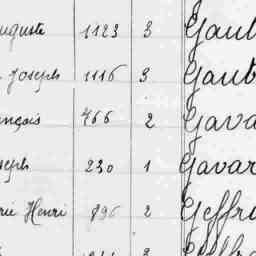 uguste 1123 3 Gaul
Joseph 1116 3 Gaub
ançois 466 2 Gava
seph 230 1 Gavar
rie Henri 896 2 Geffr